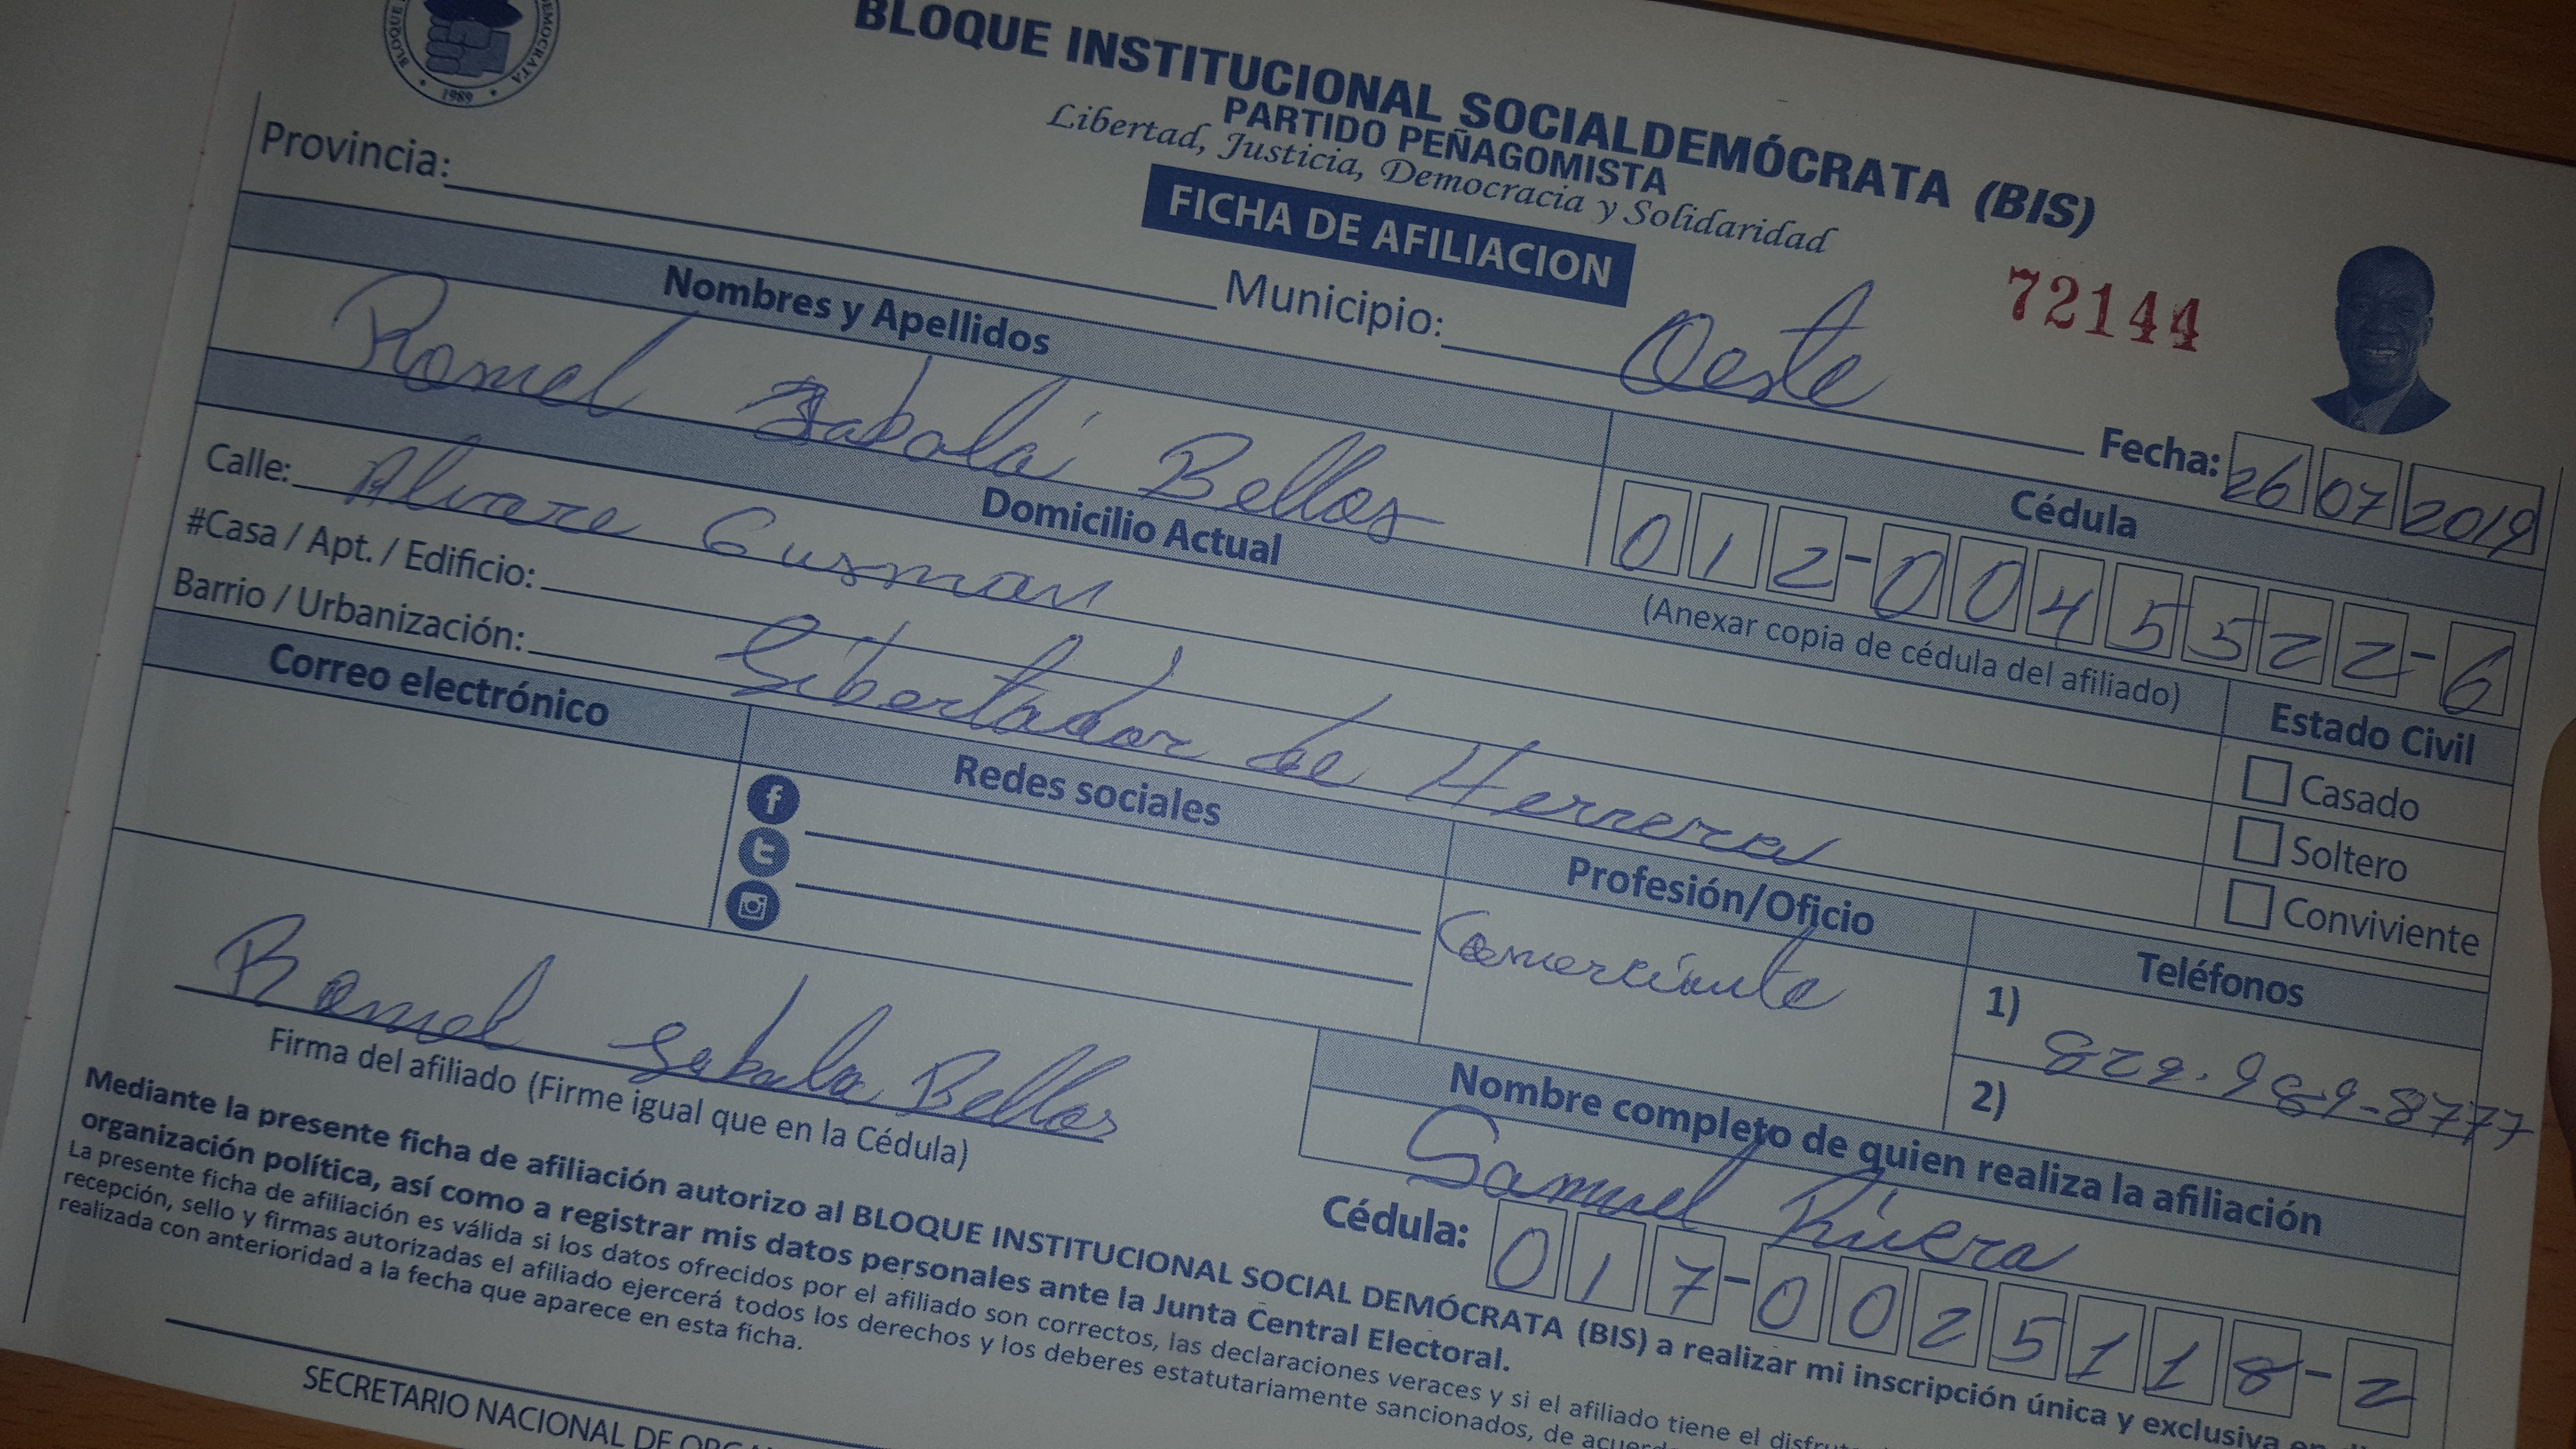 BLOQUE INSTITUCIONAL SOCIALDEMÓCRATA (BIS)
PARTIDO PEÑAGOMISTA
Libertad, Justicia, Democracia y Solidaridad
FICHA DE AFILIACION
1989
72144
Provincia: Municipio: Oeste Fecha: 26 07 2019
Nombres y Apellidos Cédula
Romel Sabala Bellos 012-0045522-6
(Anexar copia de cédula del afiliado)
Domicilio Actual Estado Civil
Calle: Alvare Gusman
#Casa / Apt. / Edificio:
Barrio / Urbanización: Libertador de Herrera
Casado
Soltero
Conviviente
Correo electrónico Redes sociales Profesión/Oficio Teléfonos
Comerciante
1) 829.989-8777
2)
Romel Sabala Bellos
Firma del afiliado (Firme igual que en la Cédula)
Nombre completo de quien realiza la afiliación
Samuel Rivera
Cédula: 017-0025118-2
Mediante la presente ficha de afiliación autorizo al BLOQUE INSTITUCIONAL SOCIAL DEMÓCRATA (BIS) a realizar mi inscripción única y exclusiva
organización política, así como a registrar mis datos personales ante la Junta Central Electoral.
La presente ficha de afiliación es válida si los datos ofrecidos por el afiliado son correctos, las declaraciones veraces y si el afiliado tiene el
recepción, sello y firmas autorizadas el afiliado ejercerá todos los derechos y los deberes estatutariamente sancionados, de
realizada con anterioridad a la fecha que aparece en esta ficha.
SECRETARIO NACIONAL DE